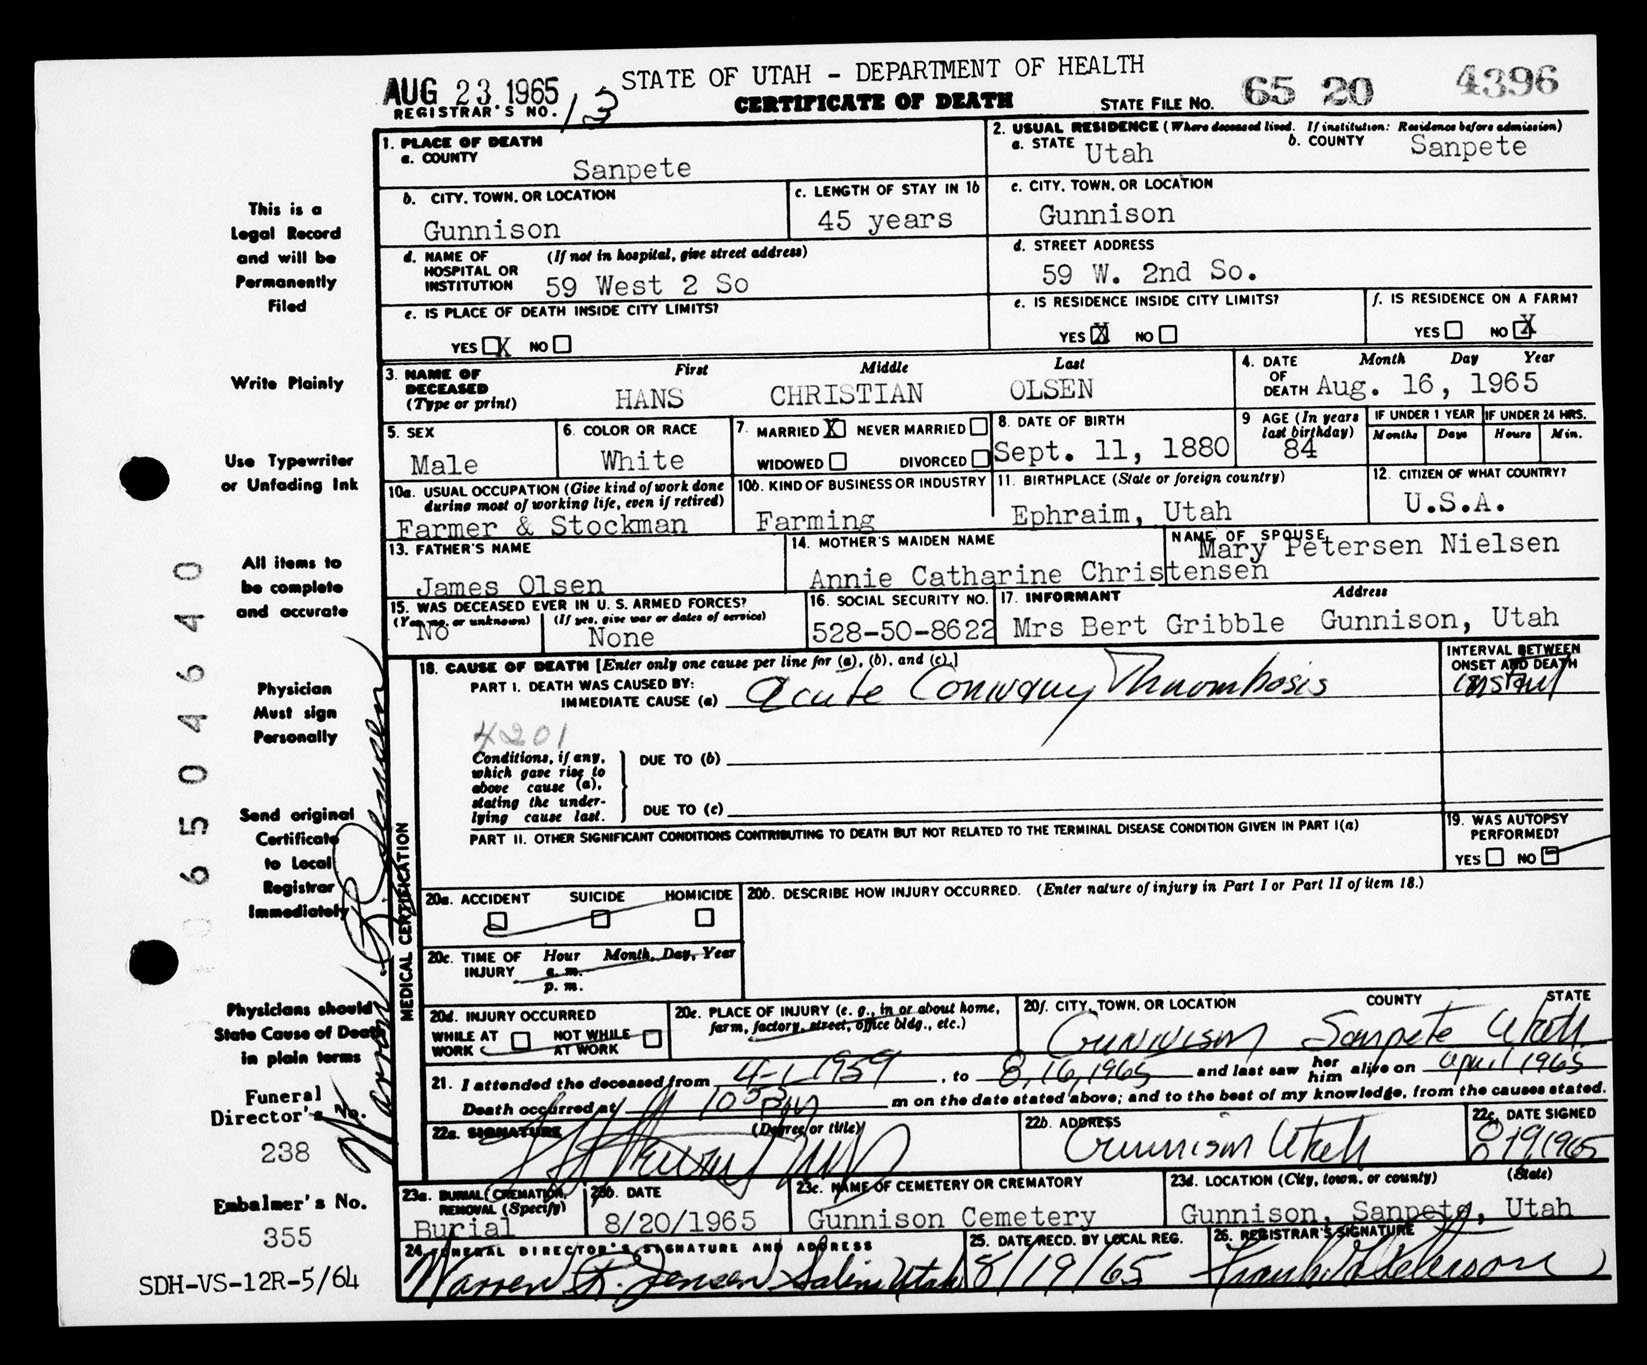 AUG 23 1965 STATE OF UTAH - DEPARTMENT OF HEALTH 65 20 4396
REGISTRAR'S NO. 13 CERTIFICATE OF DEATH STATE FILE NO.
1. PLACE OF DEATH
a. COUNTY
Sanpete
2. USUAL RESIDENCE (Where deceased lived. If institution: Residence before admission)
a. STATE Utah b. COUNTY Sanpete
b. CITY, TOWN, OR LOCATION
Gunnison
c. LENGTH OF STAY IN 1b
45 years
c. CITY, TOWN, OR LOCATION
Gunnison
d. NAME OF HOSPITAL OR INSTITUTION (If not in hospital, give street address)
59 West 2 So
d. STREET ADDRESS
59 W. 2nd So.
e. IS PLACE OF DEATH INSIDE CITY LIMITS?
YES X NO
e. IS RESIDENCE INSIDE CITY LIMITS?
YES X NO
f. IS RESIDENCE ON A FARM?
YES NO X
3. NAME OF DECEASED (Type or print) First Middle Last
HANS CHRISTIAN OLSEN
4. DATE OF DEATH Month Day Year
Aug. 16, 1965
5. SEX
Male
6. COLOR OR RACE
White
7. MARRIED X NEVER MARRIED
WIDOWED DIVORCED
8. DATE OF BIRTH
Sept. 11, 1880
9 AGE (In years last birthday)
84
IF UNDER 1 YEAR IF UNDER 24 HRS.
Months Days Hours Min.
10a. USUAL OCCUPATION (Give kind of work done during most of working life, even if retired)
Farmer & Stockman
10b. KIND OF BUSINESS OR INDUSTRY
Farming
11. BIRTHPLACE (State or foreign country)
Ephraim, Utah
12. CITIZEN OF WHAT COUNTRY?
U.S.A.
13. FATHER'S NAME
James Olsen
14. MOTHER'S MAIDEN NAME
Annie Catharine Christensen
NAME OF SPOUSE
Mary Petersen Nielsen
15. WAS DECEASED EVER IN U. S. ARMED FORCES?
(Yes, no, or unknown) (If yes, give war or dates of service)
No None
16. SOCIAL SECURITY NO.
528-50-8622
17. INFORMANT Address
Mrs Bert Gribble Gunnison, Utah
18. CAUSE OF DEATH [Enter only one cause per line for (a), (b), and (c).]
PART I. DEATH WAS CAUSED BY:
IMMEDIATE CAUSE (a) Acute Coronary Thrombosis
INTERVAL BETWEEN ONSET AND DEATH
instant
4201
Conditions, if any, which gave rise to above cause (a), stating the underlying cause last.
DUE TO (b)
DUE TO (c)
PART II. OTHER SIGNIFICANT CONDITIONS CONTRIBUTING TO DEATH BUT NOT RELATED TO THE TERMINAL DISEASE CONDITION GIVEN IN PART I(a)
19. WAS AUTOPSY PERFORMED?
YES NO
20a. ACCIDENT SUICIDE HOMICIDE
20b. DESCRIBE HOW INJURY OCCURRED. (Enter nature of injury in Part I or Part II of item 18.)
20c. TIME OF INJURY Hour Month, Day, Year
a. m.
p. m.
20d. INJURY OCCURRED
WHILE AT WORK NOT WHILE AT WORK
20e. PLACE OF INJURY (e. g., in or about home, farm, factory, street, office bldg., etc.)
20f. CITY, TOWN, OR LOCATION COUNTY STATE
Gunnison Sanpete Utah
21. I attended the deceased from 4-1, 1959, to 8, 16, 1965 and last saw her him alive on April 1965
Death occurred at m on the date stated above; and to the best of my knowledge, from the causes stated.
22a. SIGNATURE (Degree or title)
22b. ADDRESS
Gunnison Utah
22c. DATE SIGNED
8 19 1965
23a. BURIAL, CREMATION, REMOVAL (Specify)
Burial
23b. DATE
8/20/1965
23c. NAME OF CEMETERY OR CREMATORY
Gunnison Cemetery
23d. LOCATION (City, town, or county) (State)
Gunnison, Sanpete, Utah
24. FUNERAL DIRECTOR'S SIGNATURE AND ADDRESS
Warren R. Jensen Salina Utah
25. DATE RECD. BY LOCAL REG.
8/19/65
26. REGISTRAR'S SIGNATURE
MEDICAL CERTIFICATION
This is a
Legal Record
and will be
Permanently
Filed
Write Plainly
Use Typewriter
or Unfading Ink
All items to
be complete
and accurate
Physician
Must sign
Personally
Send original
Certificate
to Local
Registrar
Immediately
Physicians should
State Cause of Death
in plain terms
Funeral
Director's No.
238
Embalmer's No.
355
SDH-VS-12R-5/64
Warren R. Jensen
0650 4640